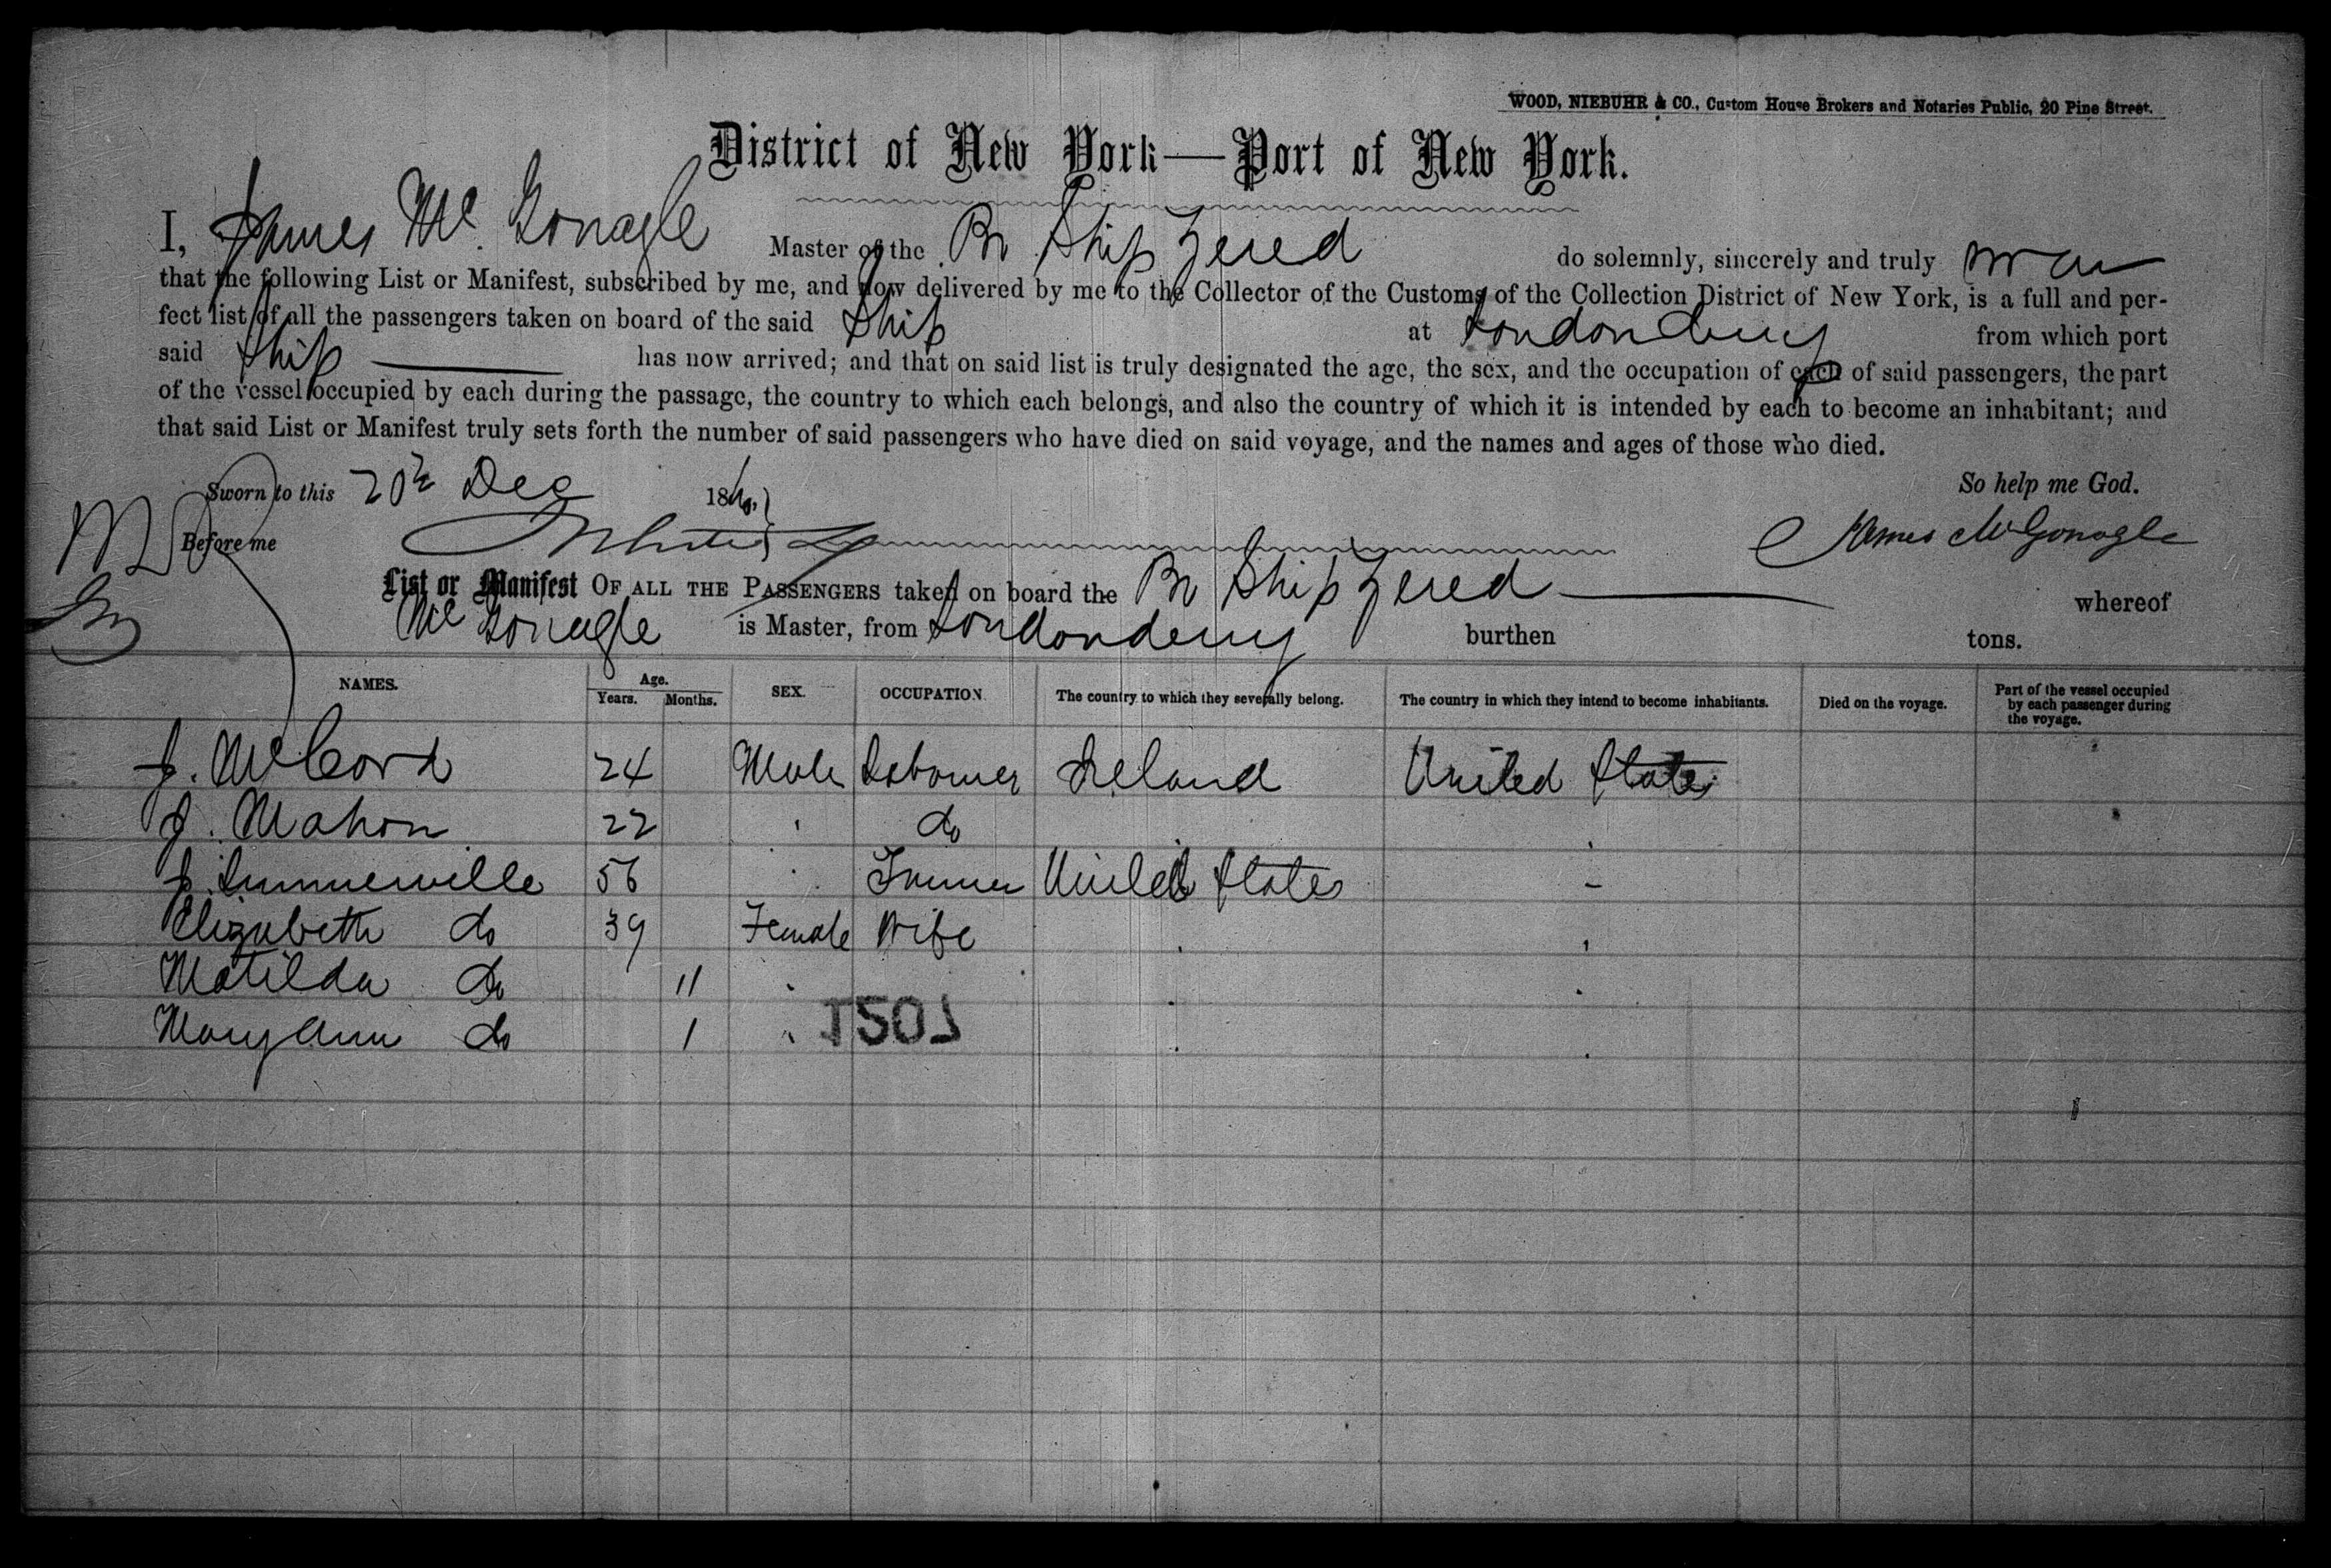 WOOD, NIEBUHR & CO., Custom House Brokers and Notaries Public, 20 Pine Street.
District of New York—Port of New York.
I, James Mc. Gonagle Master of the Br Ship Zered do solemnly, sincerely and truly swear
that the following List or Manifest, subscribed by me, and now delivered by me to the Collector of the Customs of the Collection District of New York, is a full and per-
fect list of all the passengers taken on board of the said Ship at Londonderry from which port
said Ship has now arrived; and that on said list is truly designated the age, the sex, and the occupation of each of said passengers, the part
of the vessel occupied by each during the passage, the country to which each belongs, and also the country of which it is intended by each to become an inhabitant; and
that said List or Manifest truly sets forth the number of said passengers who have died on said voyage, and the names and ages of those who died.
Sworn to this 20th Dec 18
So help me God.
Before me
James McGonagle
List or Manifest OF ALL THE PASSENGERS taken on board the Br Ship Zered whereof
Mc Gonagle is Master, from Londonderry burthen tons.
NAMES. Age. Years. Months. SEX. OCCUPATION The country to which they severally belong. The country in which they intend to become inhabitants. Died on the voyage. Part of the vessel occupied by each passenger during the voyage.
J. McCord 24 Male Labourer Ireland United States
J. Mahon 22 " do "
J. Summerville 56 " Farmer United States "
Elizabeth do 39 Female Wife " "
Matilda do 11 " " "
Mary Ann do 1 " " "
1507